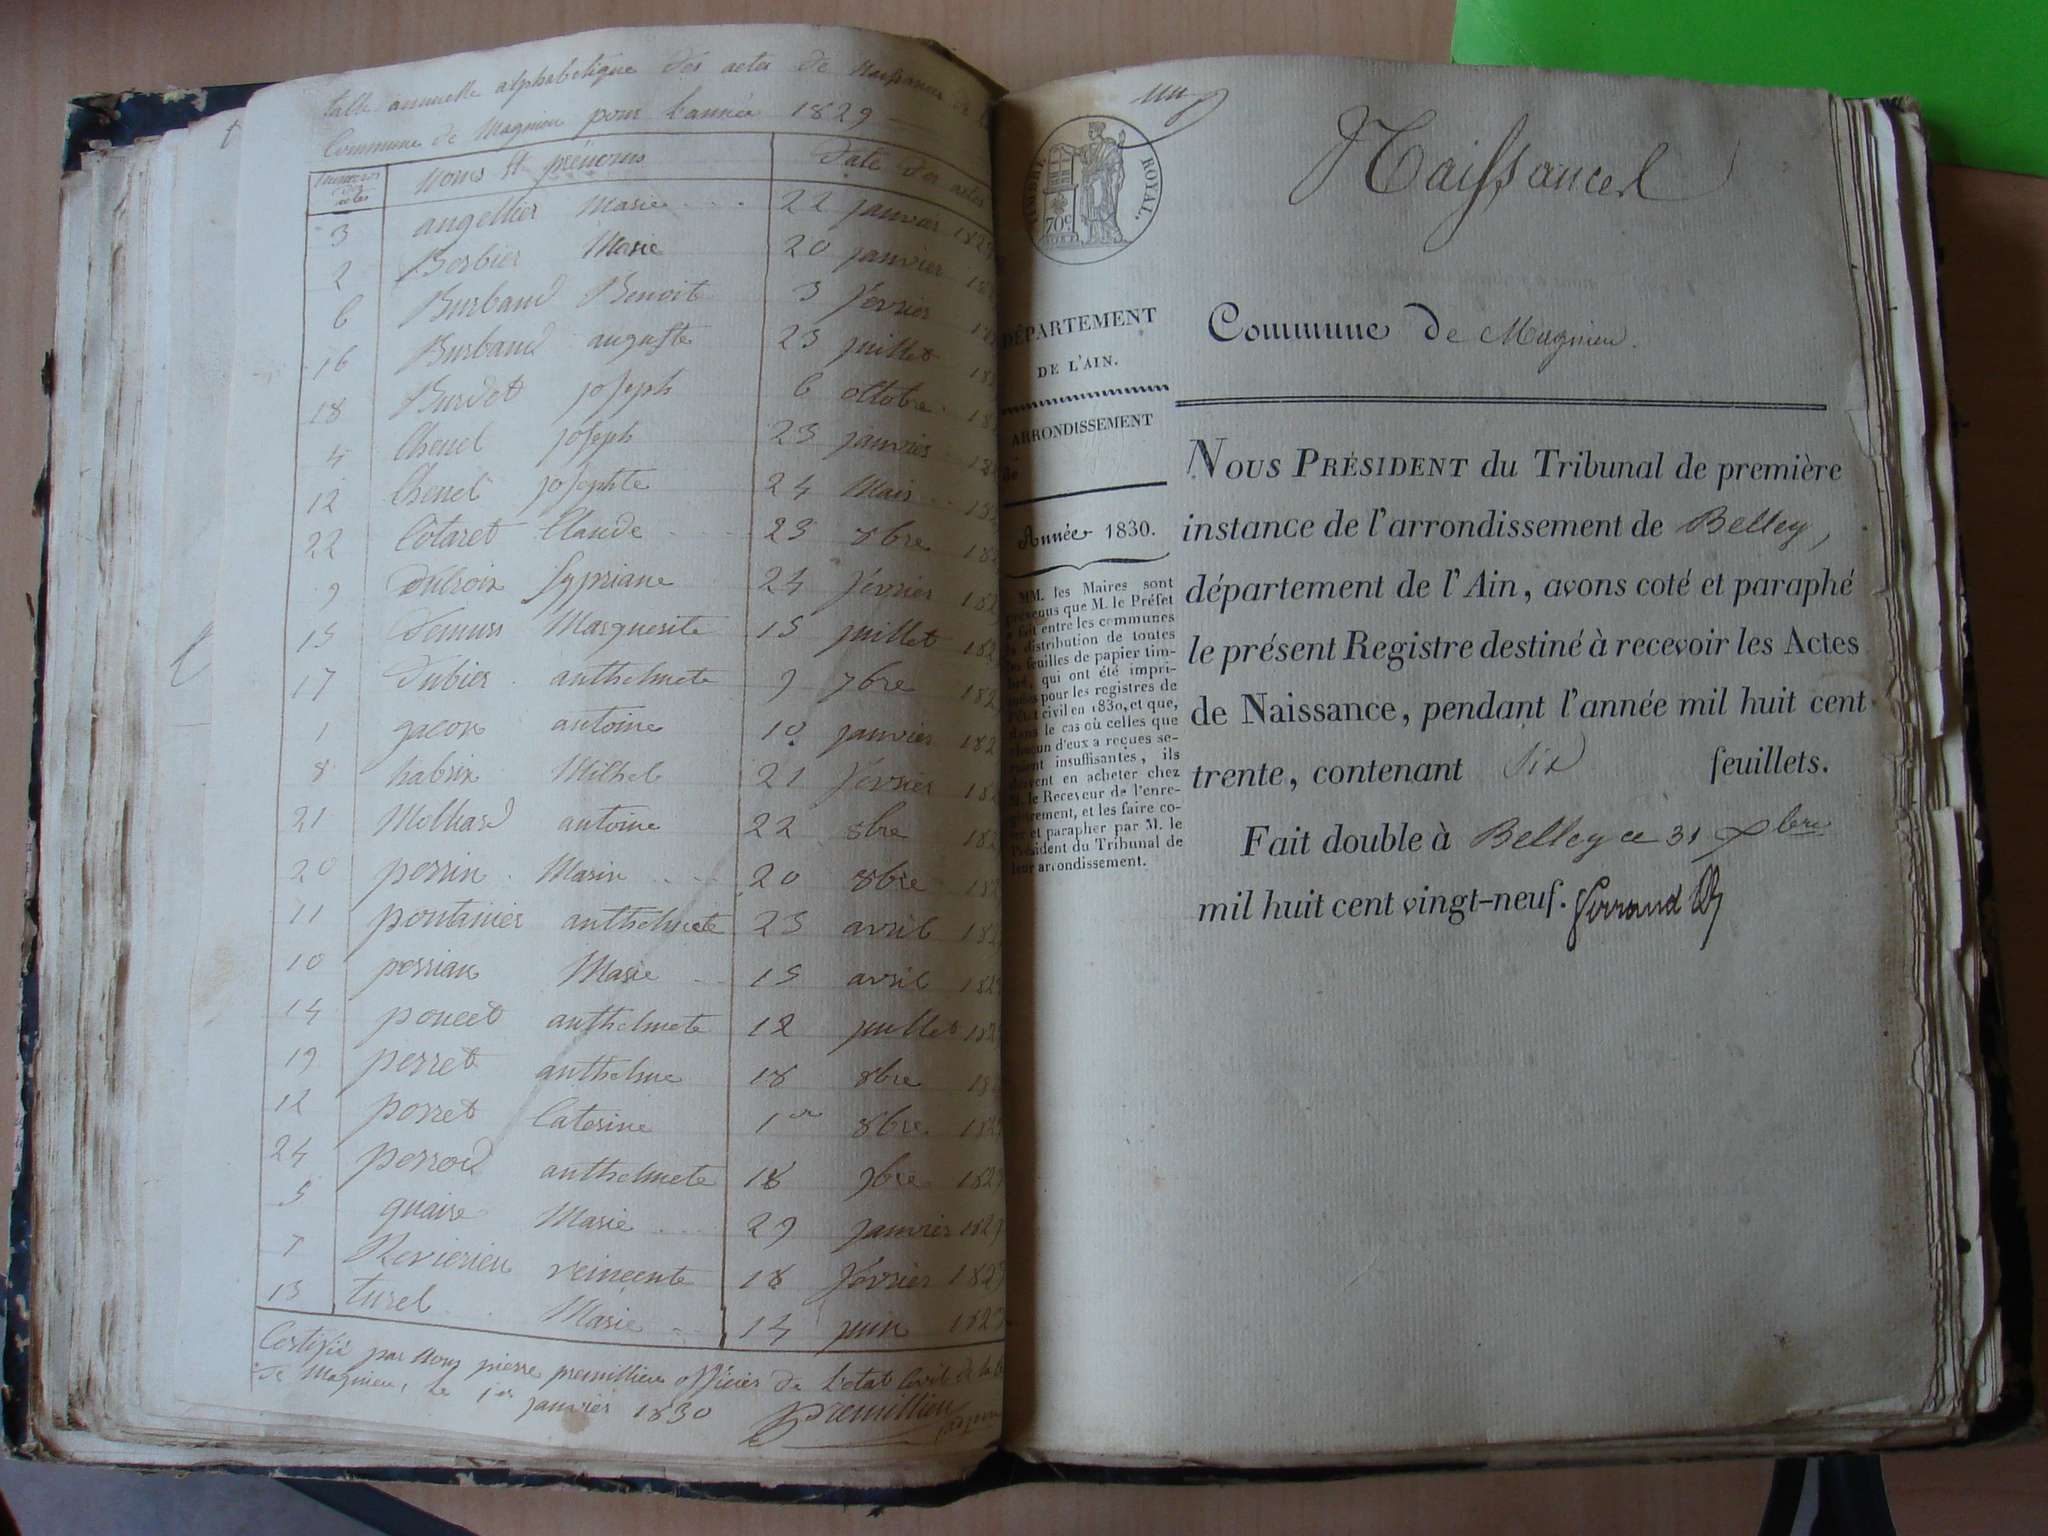 table annuelle alphabetique des actes de Naissances de la
Commune de Magnieu pour l'année 1829
Numeros des actes Noms et prénoms Date des actes
3 angellier Marie 22 janvier 1829
2 Berbier Marie 20 janvier
6 Burbaud Benoit 3 février
16 Burbaud auguste 23 juillet
18 Burdet joseph 6 octobre
4 Chenel joseph 23 janvier
12 Chenel josephte 24 Mars
22 Cotaret Claude 23 8bre
9 Dulroix Sypriane 24 février
15 Demurs Marguerite 15 juillet
17 Dubier anthelmete 9 7bre
1 gacon antoine 10 janvier
8 habrix Milhel 21 février
21 Molliard antoine 22 8bre
20 perrin Marin 20 8bre
11 pontanier anthelmete 23 avril
10 perrian Marie 15 avril
14 poncet anthelmete 12 juillet
19 perret anthelme 18 8bre
12 porret Caterine 1er 8bre
24 perrod anthelmete 18 9bre 1829
5 quaire Marie 29 janvier 1829
7 Revierieu veincente 18 février 1829
13 turel Marie 14 juin 1829
Certifié par Nous pierre premillieu officier de l'etat Civil de la
de Magnieu, le 1er janvier 1830 Premillieu
un
TIMBRE ROYAL.
70c
Naissances
DÉPARTEMENT
DE L'AIN.
ARRONDISSEMENT
de
Année 1830.
MM. les Maires sont
prévenus que M. le Préfet
a fait entre les communes
la distribution de toutes
les feuilles de papier tim-
bré, qui ont été impri-
mées pour les registres de
l'état civil en 1830, et que,
dans le cas où celles que
chacun d'eux a reçues se-
raient insuffisantes, ils
doivent en acheter chez
M. le Receveur de l'enre-
gistrement, et les faire co-
ter et parapher par M. le
Président du Tribunal de
leur arrondissement.
Commune de Magnieu.
NOUS PRÉSIDENT du Tribunal de première
instance de l'arrondissement de Belley,
département de l'Ain, avons coté et paraphé
le présent Registre destiné à recevoir les Actes
de Naissance, pendant l'année mil huit cent
trente, contenant Six feuillets.
Fait double à Belley ce 31 Xbere
mil huit cent vingt-neuf.